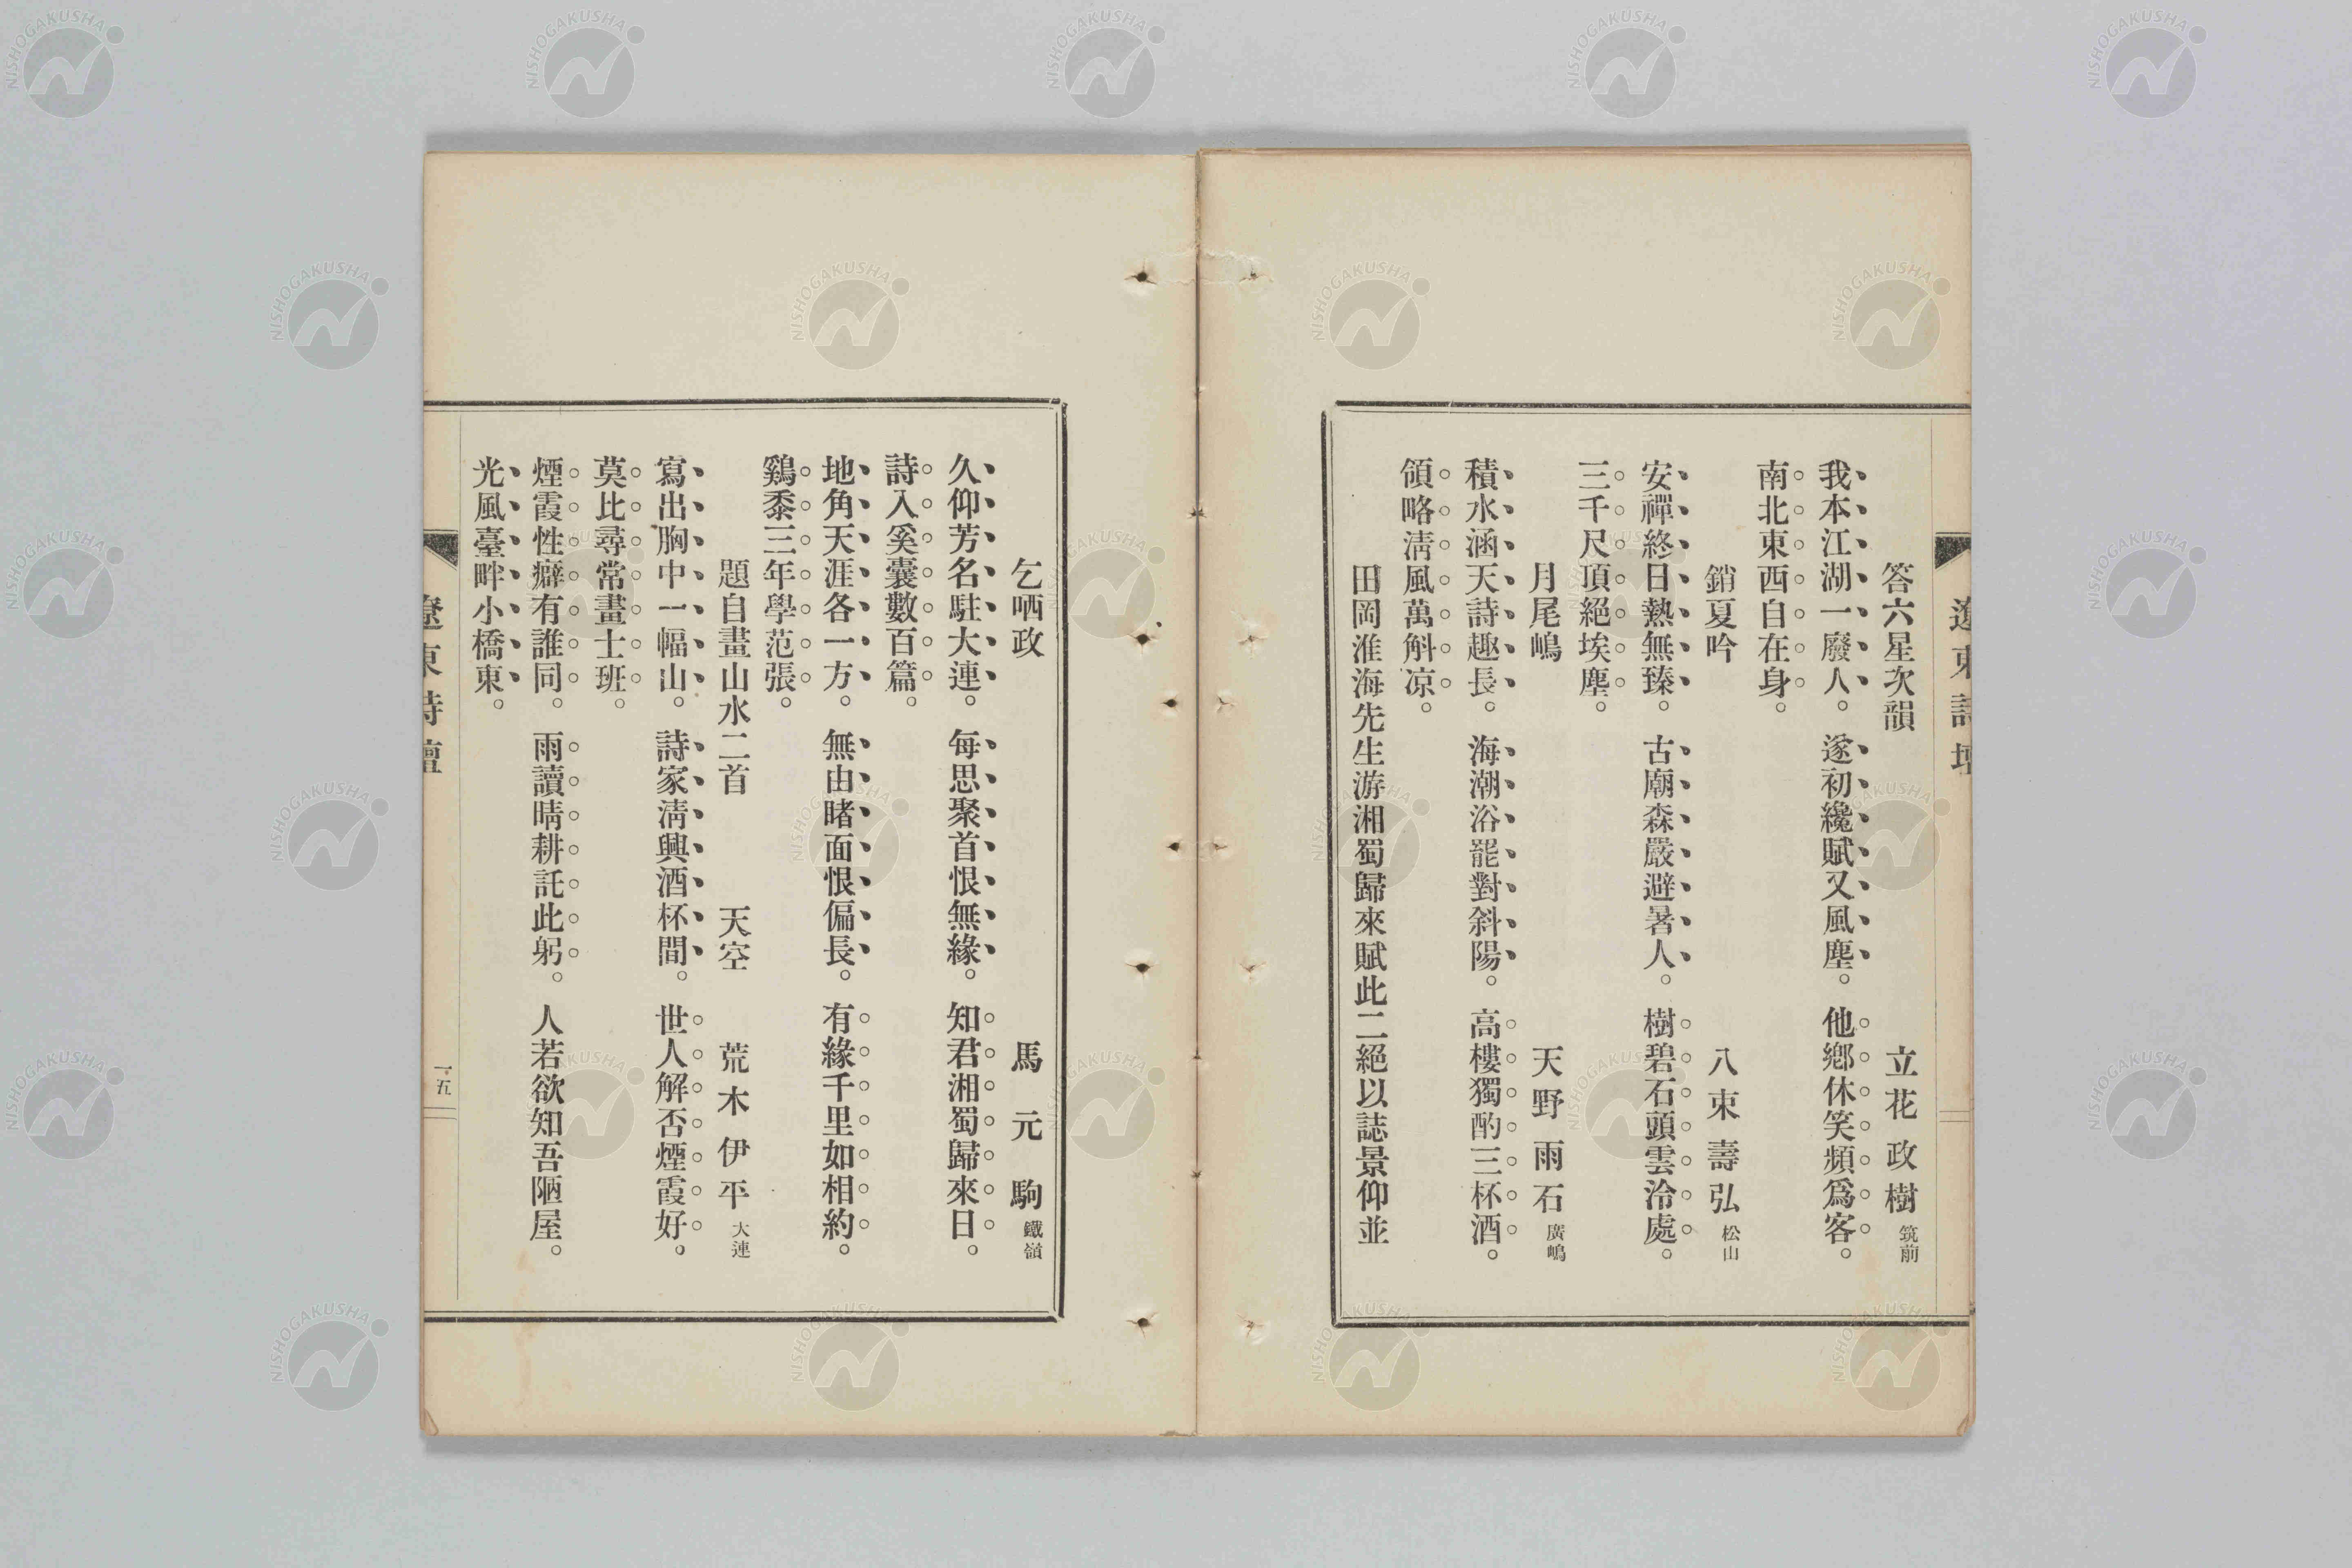 遼東詩壇
答六星次韻　立花政樹 筑前
我本江湖一廢人。遂初纔賦又風塵。他鄕休笑頻爲客。
南北東西自在身。
銷夏吟　八束壽弘 松山
安禪終日熱無臻。古廟森嚴避暑人。樹碧石頭雲冷處。
三千尺頂絕埃塵。
月尾嶋　天野雨石 廣嶋
積水涵天詩趣長。海潮浴罷對斜陽。高樓獨酌三杯酒。
領略淸風萬斛凉。
田岡淮海先生游湘蜀歸來賦此二絕以誌景仰並
乞哂政　馬元駒 鐵嶺
久仰芳名駐大連。每思聚首恨無緣。知君湘蜀歸來日。
詩入奚囊數百篇。
地角天涯各一方。無由睹面恨偏長。有緣千里如相約。
鷄黍三年學范張。
題自畫山水二首　天空　荒木伊平 大連
寫出胸中一幅山。詩家淸興酒杯間。世人解否煙霞好。
莫比尋常畫士班。
煙霞性癖有誰同。雨讀晴耕託此躬。人若欲知吾陋屋。
光風臺畔小橋東。
遼東詩壇
一五
NISHOGAKUSHA